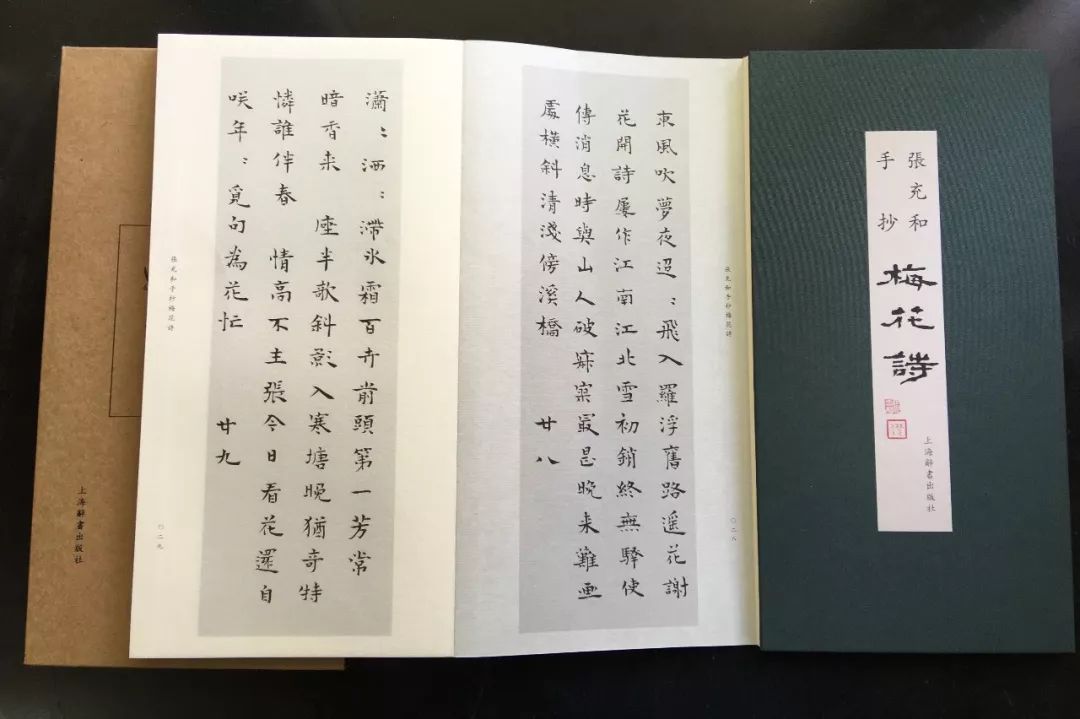 張充和
手抄
梅花詩
上海辭書出版社
張充和手抄梅花詩
〇二八
東風吹夢夜迢〻飛入羅浮舊路遥花謝
花開詩屢作江南江北雪初銷終無驛使
傳消息時與山人破寂寞最是晚来難画
處橫斜清淺傍溪橋 廿八
瀟〻洒〻滯氷霜百卉前頭第一芳常
暗香来 座半歌斜影入寒塘晚猶奇特
憐誰伴春 情高不主張今日看花還自
咲年〻覓句為花忙 廿九
張充和手抄梅花詩
〇二九
上海辭書出版社